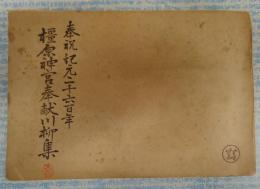 奉祝紀元二千六百年
橿原神宮奉献川柳集